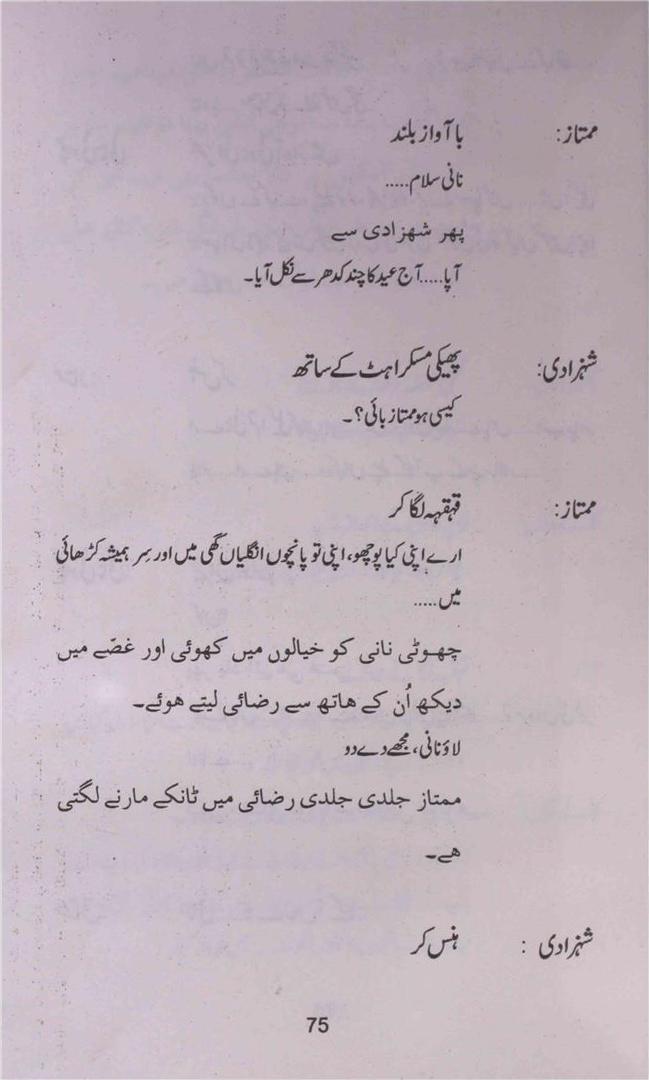 ممتاز: باآواز بلند
نانی سلام.....
پھر شھزادی سے
آپا.....آج عید کا چند کدھر سے نکل آیا۔
شہزادی: پھیکی مسکراہٹ کے ساتھ
کیسی ہو ممتاز بائی؟۔
ممتاز: قہقہہ لگا کر
ارے اپنی کیا پوچھو، اپنی تو پانچوں انگلیاں گھی میں اور سِر ہمیشہ کڑھائی
میں.....
چھوٹی نانی کو خیالوں میں کھوئی اور غصّے میں
دیکھ اُن کے ھاتھ سے رضائی لیتے ھوئے۔
لاؤ نانی، مجھے دے دو
ممتاز جلدی جلدی رضائی میں ٹانکے مارنے لگتی
ھے۔
شہزادی : ہنس کر
75